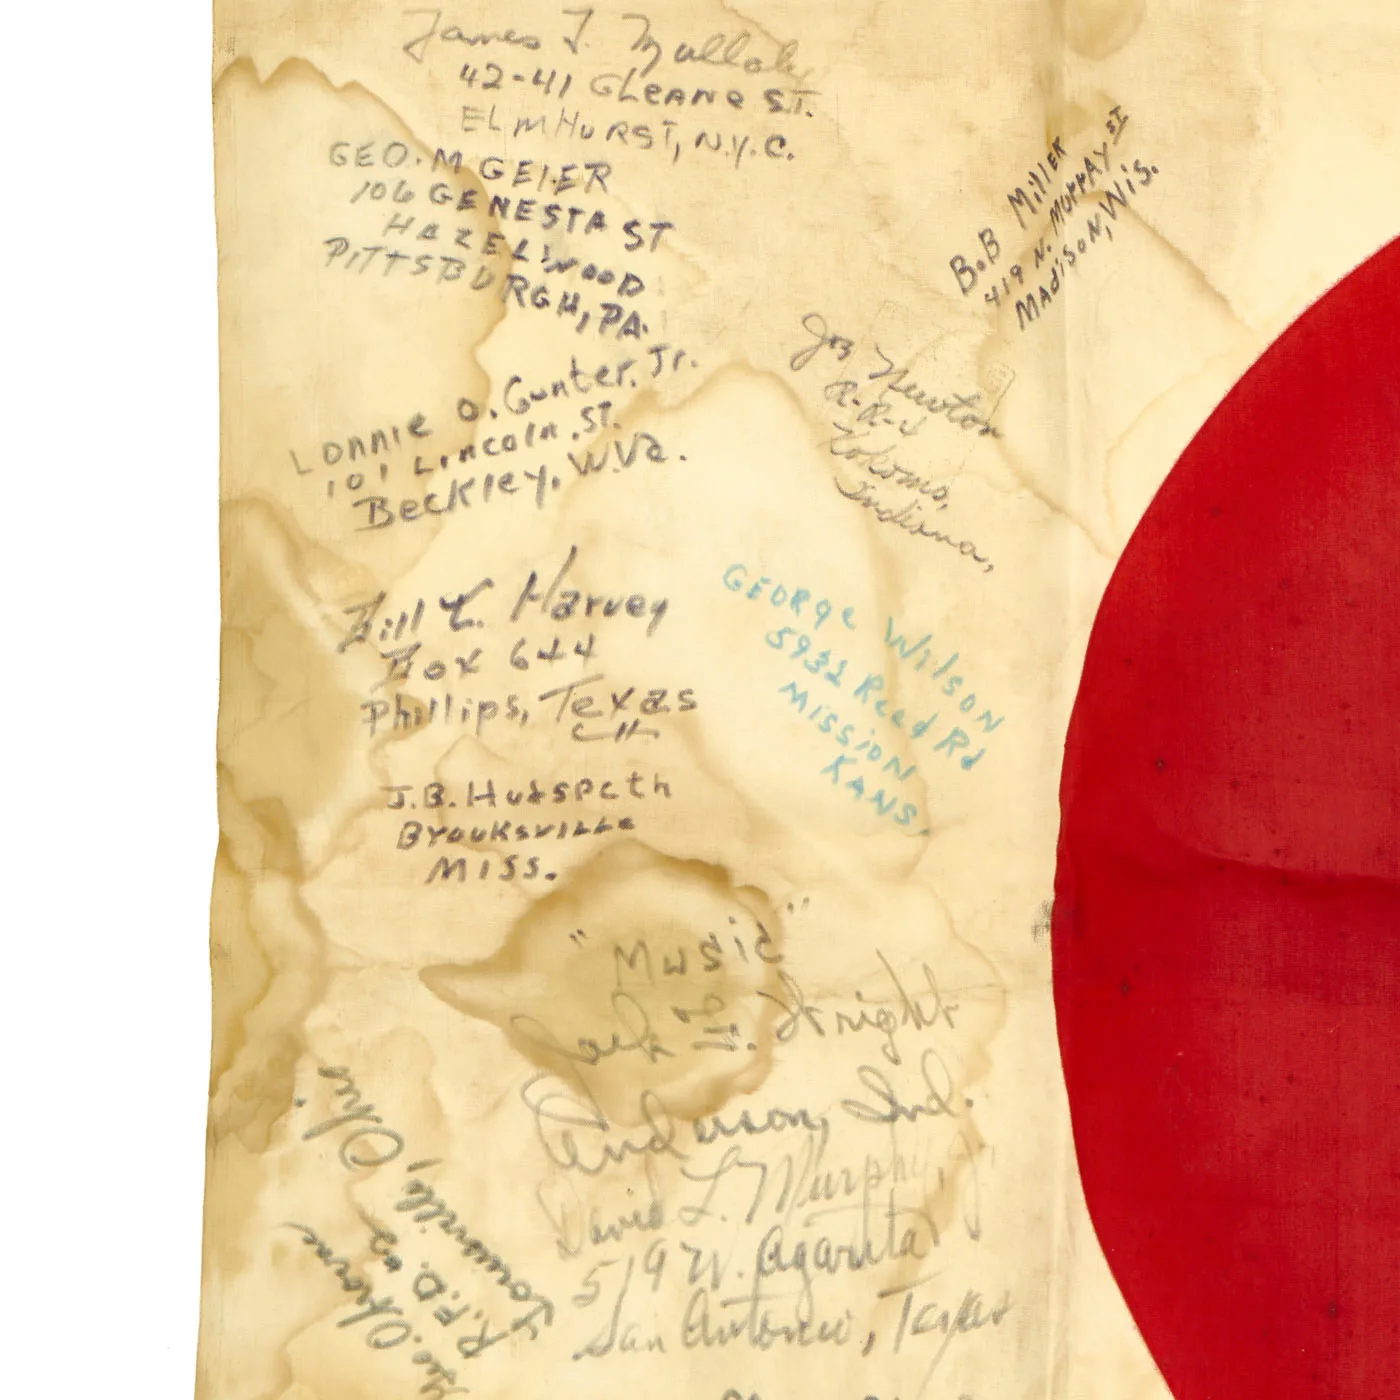 James J.
42-41 GLEANE ST.
ELMHURST, N.Y.C.
GEO. M GEIER
106 GENESTA ST
HAZELWOOD
PITTSBURGH, PA.
BOB MillER
419 N. MURRAY ST
MADiSON, WiS.
LONNIE O. Gunter, Jr.
101 Lincoln ST.
Beckley, W.Va.
Joe Newton
R-R-4
Kokomo,
Indiana,
Bill L. Harvey
Box 644
Phillips, Texas
GEORGE WilSON
5932 Reed Rd
MiSSiON
KANS.
J.B. Hudspeth
Brooksville
MISS.
"Music"
Jack I. Wright
Anderson, Ind.
David L. Murphy, Jr
519 W. Agarita
San Antonio, Texas
Geo.
R.F.D.
Ohio